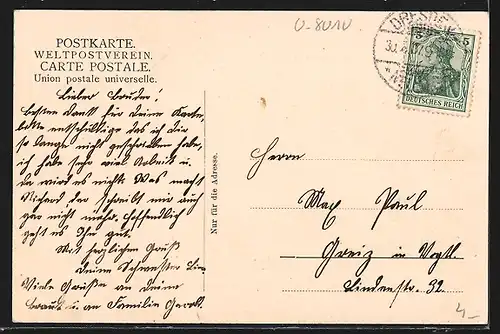 U-8010
POSTKARTE.
WELTPOSTVEREIN.
CARTE POSTALE.
Union postale universelle.
DRESDEN
5 5
DEUTSCHES REICH
Lieber Bruder!
Besten Dank für Deine Karte,
bitte entschuldige das ich Dir
so lange nicht geschrieben habe,
ich habe sehr viel Arbeit u.
da wird es nichts. Was macht
Richard der schreibt mir auch
gar nicht mehr. Hoffentlich
geht es Ihn gut.
Mit herzlichen Gruß
Deine Schwester
Viele Grüße an Deine
Braut u. an Familie
Nur für die Adresse.
Herrn
Max Paul
Greiz in Vogtl.
Lindenstr. 32
4-